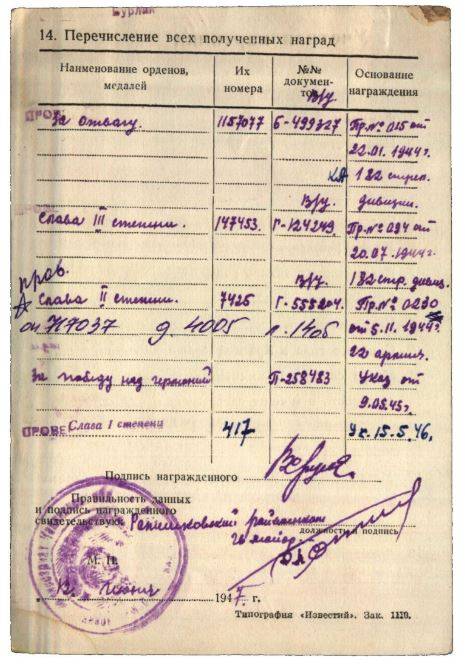 Бурлак
14. Перечисление всех полученных наград
Наименование орденов, медалей Их номера №№ документов Основание награждения
В/у
ПРОВЕ
За отвагу. 1157077 Б-499327 Пр.№ 015 от
22.01.1944г.
182 стрел.
В/у. дивизии.
Слава III степени. 147453. Г-124249. Пр.№ 094 от
20.07.1944г.
пров. В/у. 182 стр. дивиз.
Слава II степени. 7425 Г-555204. Пр.№ 0230
оп 717037 д. 4005 л. 140б от 5.11.1944г.
22 армии.
За победу над германией П-258483 Указ от
9.05.45г.
ПРОВЕ Слава I степени 417 Ук. 15.5.46.
Подпись награжденного
Правильность данных
и подпись награжденного
свидетельствую: райвоенком
должность и подпись
майор
М. П.
12. Июня 1947. г.
Типография «Известий». Зак. 1119.